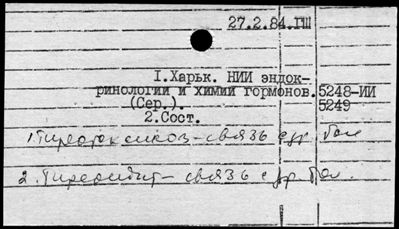 27.2.84.ГШ
I.Харьк. НИИ эндок-
ринологии и химии гормонов. 5248-ИИ
(Сер.). 5249
2.Сост.
1. Тиреотоксикоз - связь с др. бол
2. Тиреоидит - связь с др бол.